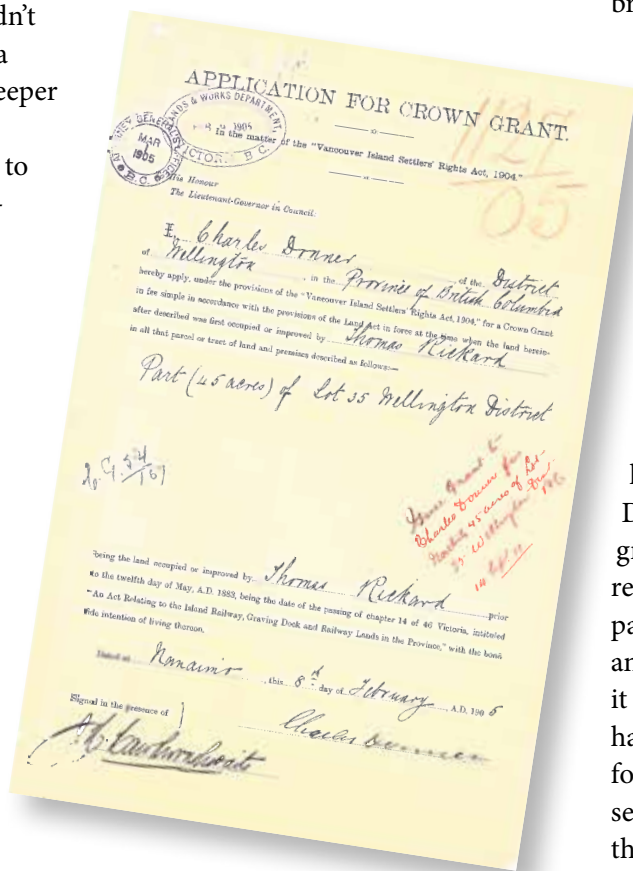 dn't
a
eeper
to
br
APPLICATION FOR CROWN GRANT.
LANDS & WORKS DEPARTMENT,
1905
VICTORIA B. C.
ATTORNEY GENERAL'S OFFICE
MAR
1905
B.C.
1127
05
In the matter of the "Vancouver Island Settlers' Rights Act, 1904."
His Honour
The Lieutenant-Governor in Council:
I, Charles Donner of the District
of Wellington, in the Province of British Columbia
hereby apply, under the provisions of the "Vancouver Island Settlers' Rights Act, 1904," for a Crown Grant
in fee simple in accordance with the provisions of the Land Act in force at the time when the land herein-
after described was first occupied or improved by Thomas Rickard
in all that parcel or tract of land and premises described as follows:—
Part (45 acres) of Lot 35 Wellington District
C.G. 54/167
Crown Grant to
Charles Donner for
45 acres of Lot
35 Wellington Dist.
14
being the land occupied or improved by Thomas Rickard prior
to the twelfth day of May, A.D. 1883, being the date of the passing of chapter 14 of 46 Victoria, intituled
"An Act Relating to the Island Railway, Graving Dock and Railway Lands in the Province," with the bonâ
fide intention of living thereon.
Dated at Nanaimo, this 8th day of February, A.D. 1905
Signed in the presence of
Charles Donner
D
gr
re
pa
an
it
ha
fo
se
th